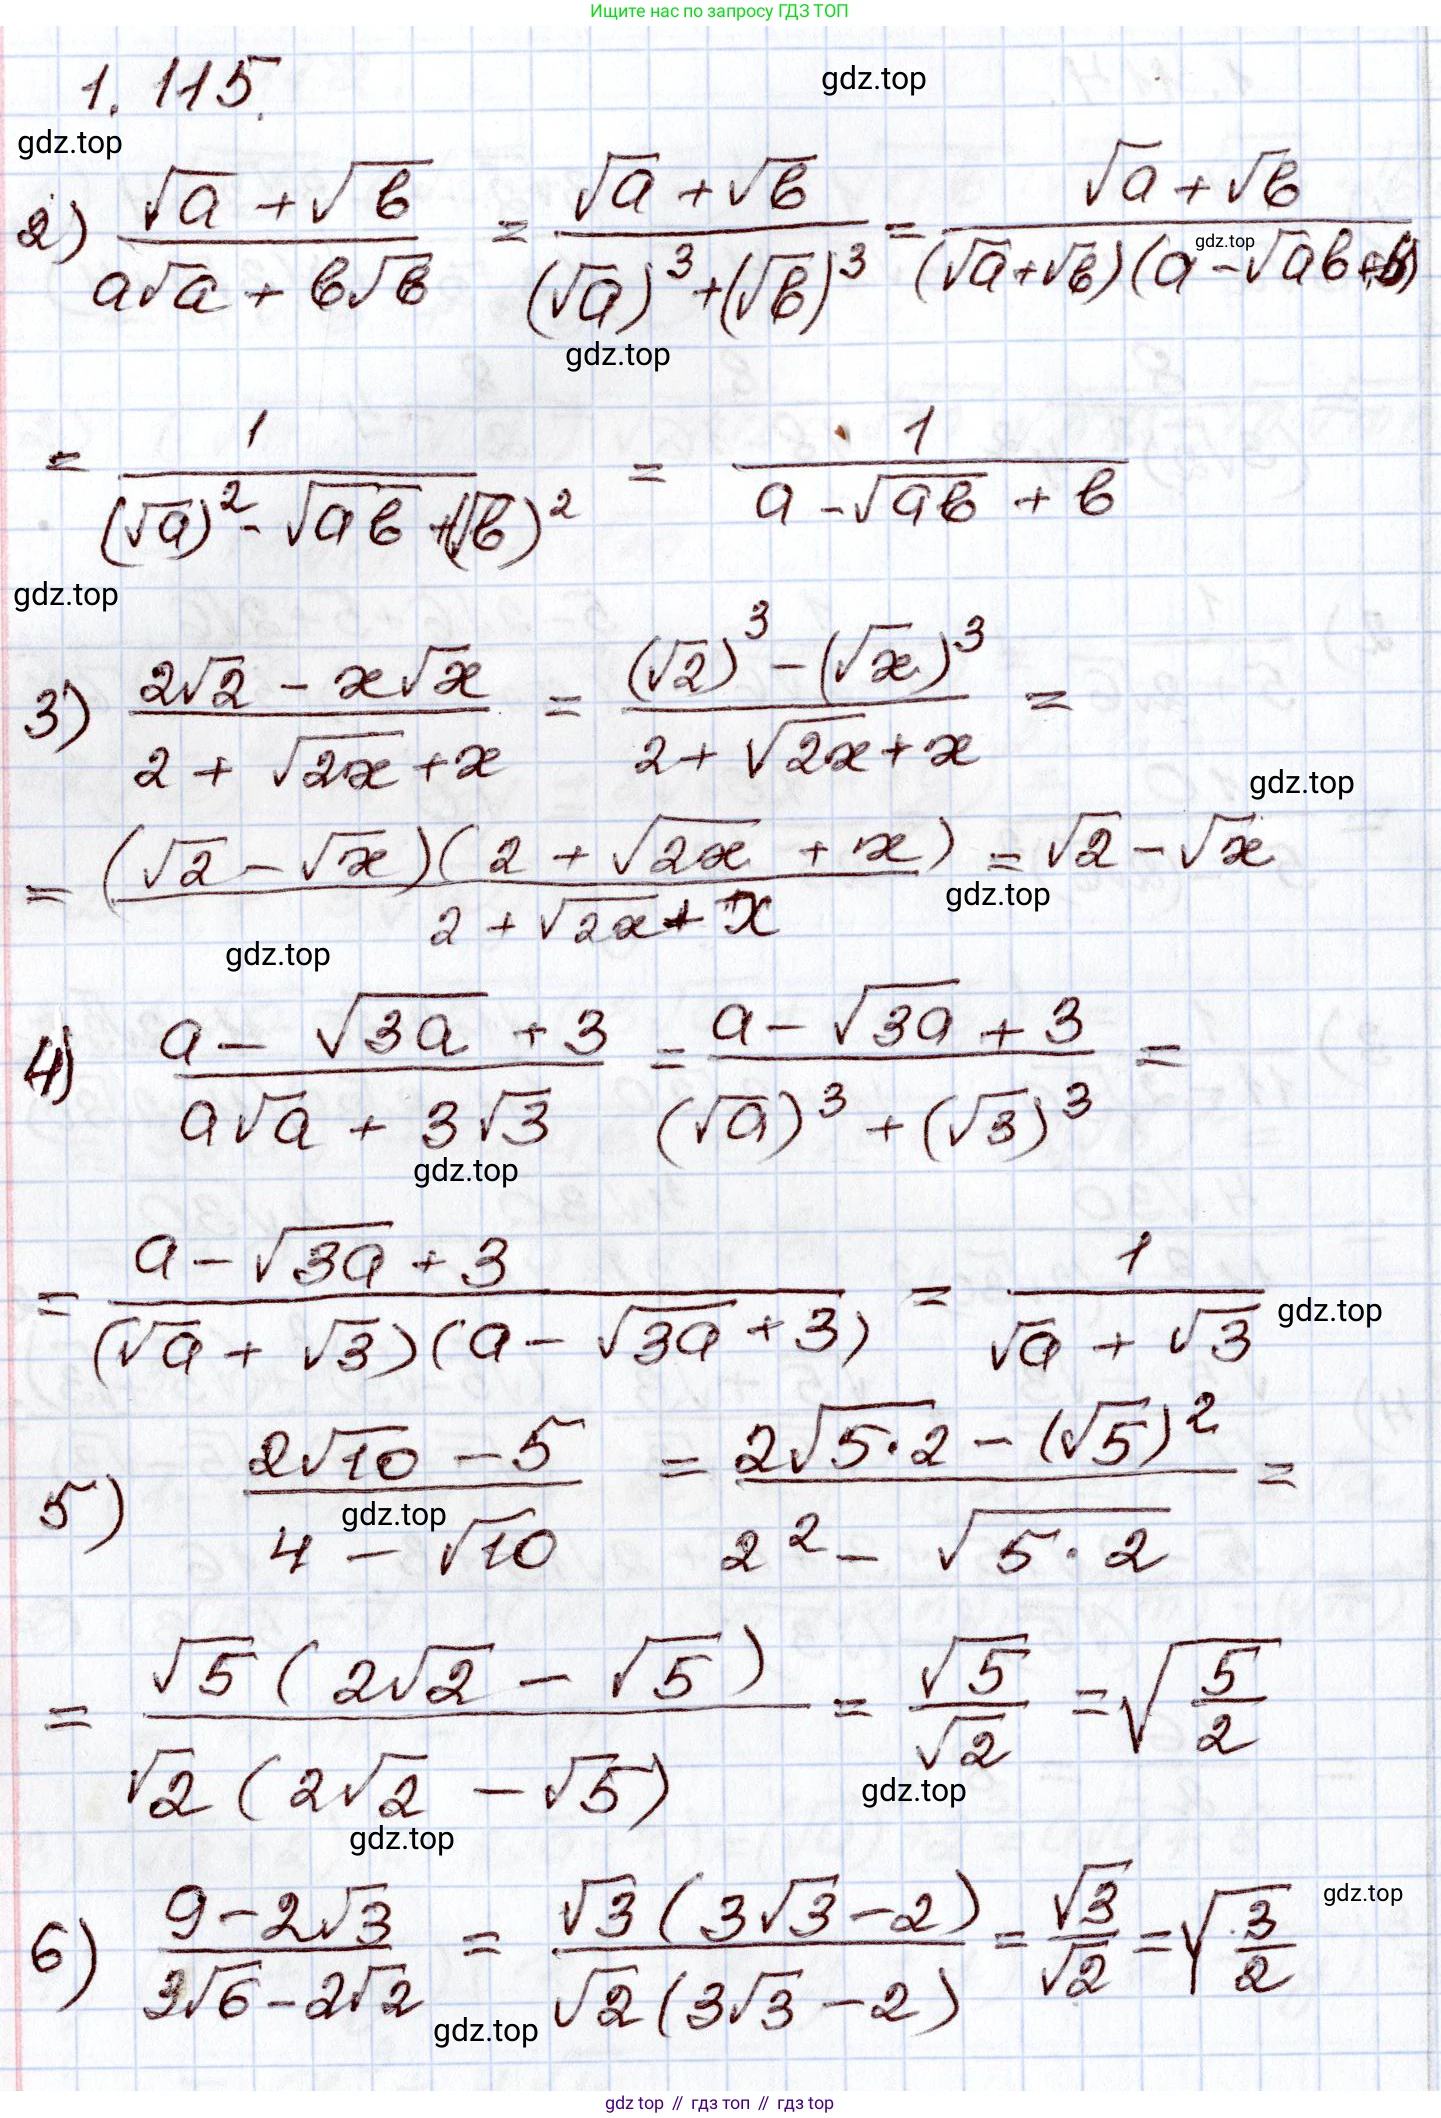 Ищите нас по запросу ГДЗ ТОП
1.115.
gdz.top
gdz.top
2) (√a + √b)/(a√a + b√b) = (√a + √b)/((√a)³ + (√b)³) = (√a + √b)/((√a + √b)(a - √ab + b))
gdz.top
gdz.top
= 1/((√a)² - √ab + (√b)²) = 1/(a - √ab + b)
gdz.top
3) (2√2 - x√x)/(2 + √2x + x) = ((√2)³ - (√x)³)/(2 + √2x + x) =
gdz.top
= ((√2 - √x)(2 + √2x + x))/(2 + √2x + x) = √2 - √x
gdz.top
gdz.top
4) (a - √3a + 3)/(a√a + 3√3) = (a - √3a + 3)/((√a)³ + (√3)³) =
gdz.top
= (a - √3a + 3)/((√a + √3)(a - √3a + 3)) = 1/(√a + √3)
gdz.top
5) (2√10 - 5)/(4 - √10) = (2√5·2 - (√5)²)/(2² - √5·2) =
gdz.top
= (√5(2√2 - √5))/(√2(2√2 - √5)) = √5/√2 = √(5/2)
gdz.top
gdz.top
6) (9 - 2√3)/(3√6 - 2√2) = (√3(3√3 - 2))/(√2(3√3 - 2)) = √3/√2 = √(3/2)
gdz.top
gdz.top
gdz top // гдз топ // гдз top